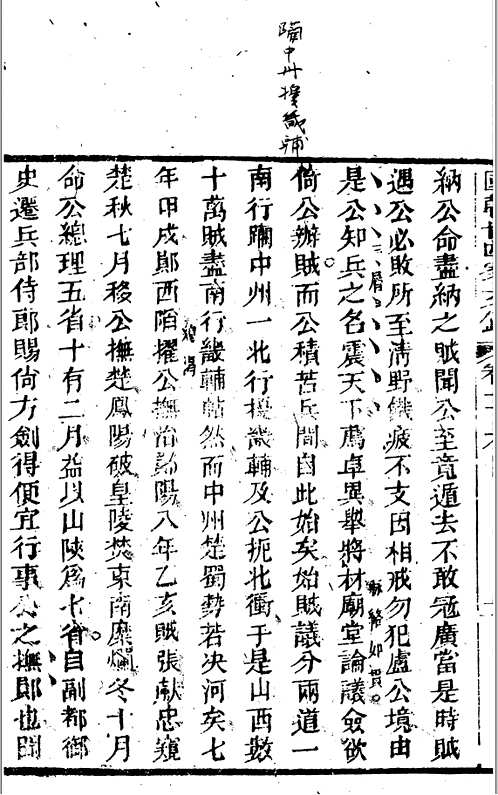 國朝廿四家文鈔
納公命盡納之賊聞公至竟遁去不敢冦廣當是時賊
遇公必敗所至淸野饑疲不支因相戒勿犯盧公境由
是公知兵之名震天下薦卓異舉將材廟堂論議僉欲
脉絡如貫
三層
倚公辦賊而公積苦兵間自此始矣始賊議分兩道一
南行躪中州一北行擾畿輔及公扼北衝于是山西數
十萬賊盡南行畿輔帖然而中州楚蜀勢若决河矣七
年甲戌鄖西陷擢公撫治鄖陽八年乙亥賊張献忠窺
楚秋七月移公撫楚鳳陽破皇陵焚東南糜爛冬十月
命公總理五省十有二月益以山陝爲七省自副都御
史遷兵部侍郎賜尚方劍得便宜行事公之撫鄖也聞